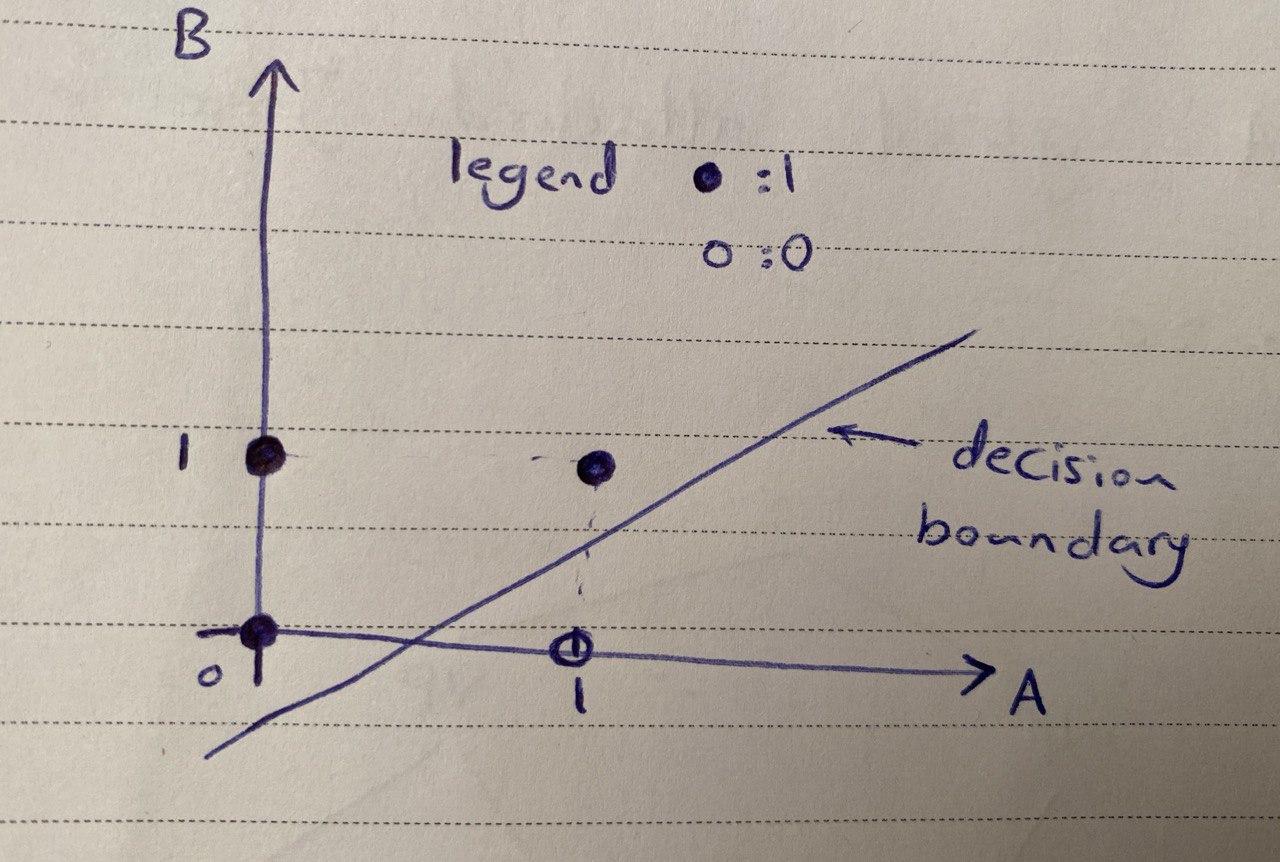 B
legend ● :1
○ :0
1
decision
boundary
0
1
A